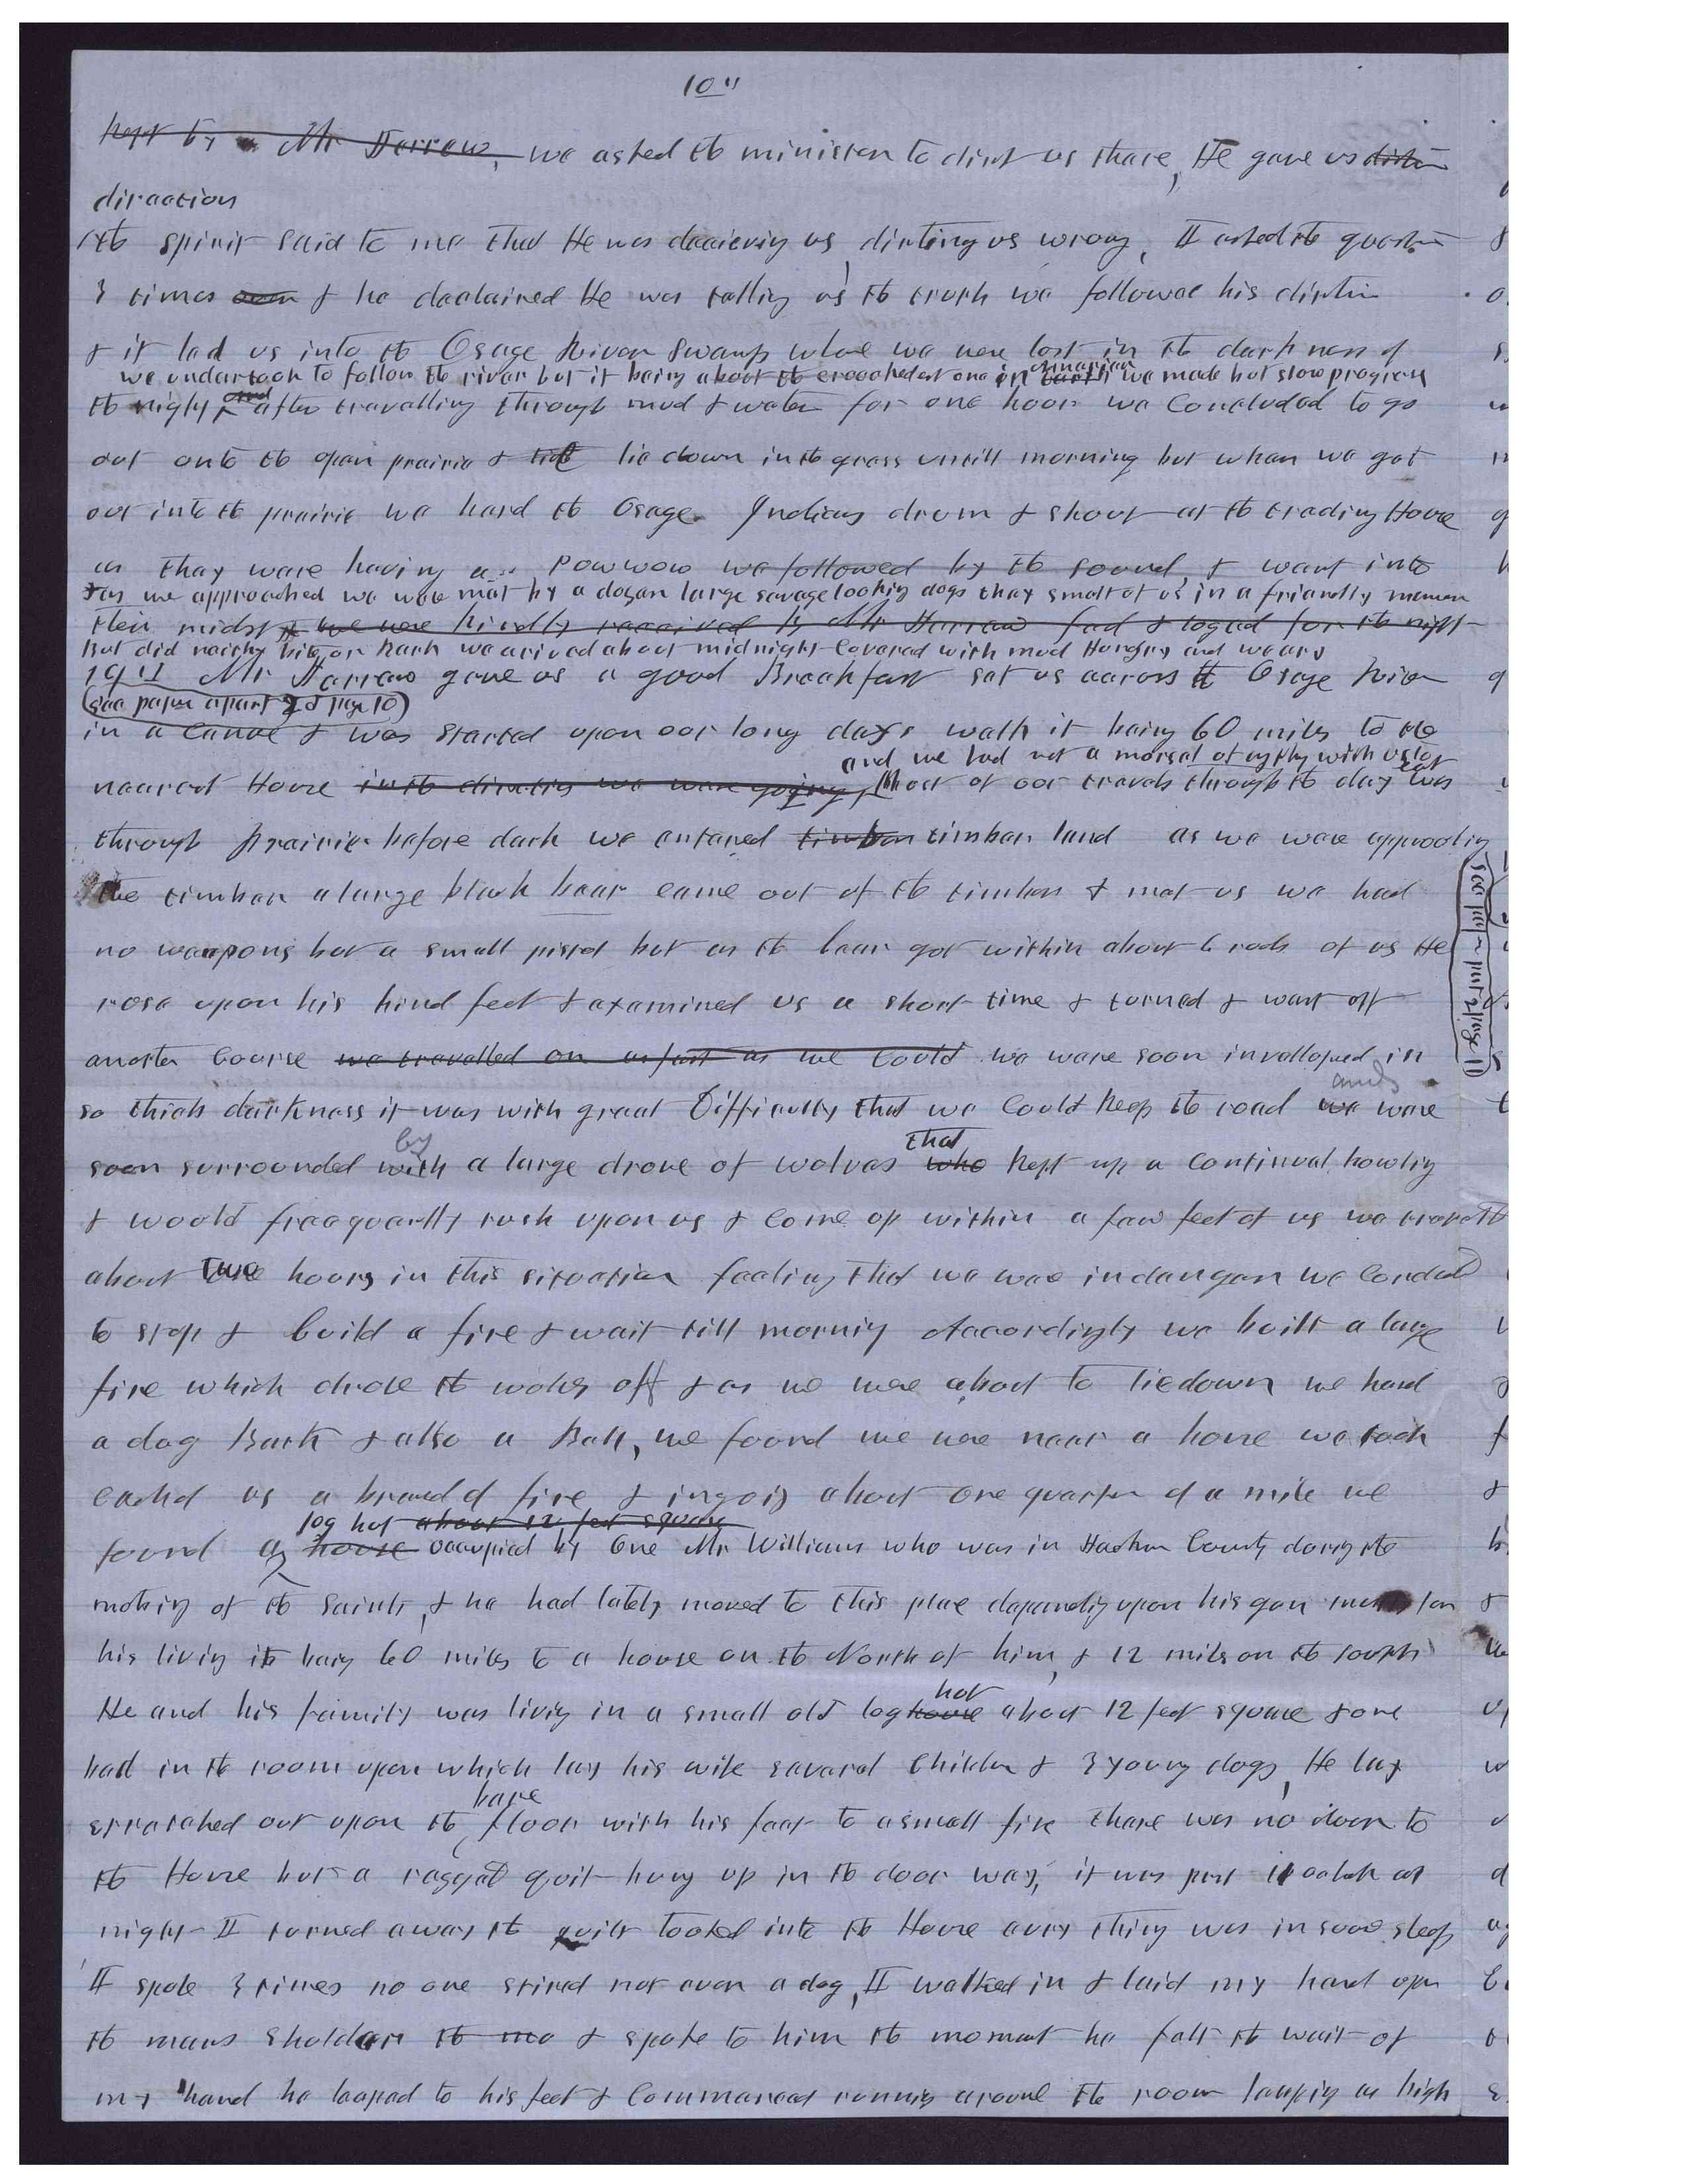 10"
kept by a Mr Jerrew, we asked the minister to dirct us there, He gave us
diraction
the spirit said to me that He was deceieving us, dircting us wrong, I asked the question
3 times & he declaired He was telling us the truth we followed his dirction
& it led us into the Osage River Swamp whare we were lost in the darkness of
we undertook to follow the river but it being about the crookedest one in America we made but slow progress
the night, and after travelling through mud & water for one hour we Concluded to go
out onto the open prairie & lie down in the grass untill morning but when we got
out into the prairie we hard the Osage Indians drum & shout at the trading House
as they ware having a Pow wow we followed by the sound, & went into
& as we approached we ware met by a dozen large savage looking dogs they smelt of us in a friendly manner
their midst & we were kindly received by Mr Harrow fed & loged for the night
But did neithr bite or bark we arived about midnight Covered with mud Hungry and weary
19th Mr Jerrew gave us a good Breakfast set us across the Osage River
(see paper apart 2d page 10)
in a Canoe & was started upon our long days walk it being 60 miles to the
and we had not a morsal of any thing with us to eat
nearest House in the direction we ware going, Most of our travels through the day was
through prairie before dark we entered timber timber land as we ware approaching
the timber a large black bear came out of the timber & met us we had
no weapons but a small pistol but as the bear got within about 6 rods of us He
rose upon his hind feet & examined us a short time & turned & went off
another Course we travelled on as fast as we Could we ware soon invelloped in
and
so thick darkness it was with great Difficulty that we Could keep the road we ware
by that
soon surrounded with a large drove of wolves who kept up a Continual howling
& would freequently rush upon us & Come up within a few feet of us we
about two hours in this situation feeling that we ware in danger we
to stop & build a fire & wait till morning Accordingly we built a large
fire which drove the wolves off & as we ware about to lie down we hard
a dog Bark & also a Bell, we found we ware near a house we took
eached us a brand of fire & in going about one quarter of a mile we
log hut about 12 feet square
found a house occupied by One Mr Williams who was in Jackson County during the
mobing of the Saints, & he had lately moved to this place depending upon his gun for
his living it being 60 miles to a house on the North of him, & 12 miles on the south
hut
He and his family was living in a small old log house about 12 feet square & one
bed in the room upon which lay his wife several Children & 3 young dogs, He lay
bare
stratched out upon the floor with his feet to a small fire there was no door to
the House but a ragged quilt hung up in the door way, it was past 11 oclock at
night I turned away the quilt looked into the House every thing was in sound sleep
I spoke 3 times no one stired not even a dog, I walked in & laid my hand upon
the mans sholder the mo & spoke to him the moment he felt the wait of
my hand he leaped to his feet & Commenced runnig around the room leaping as high
see paper apart 2d page 11